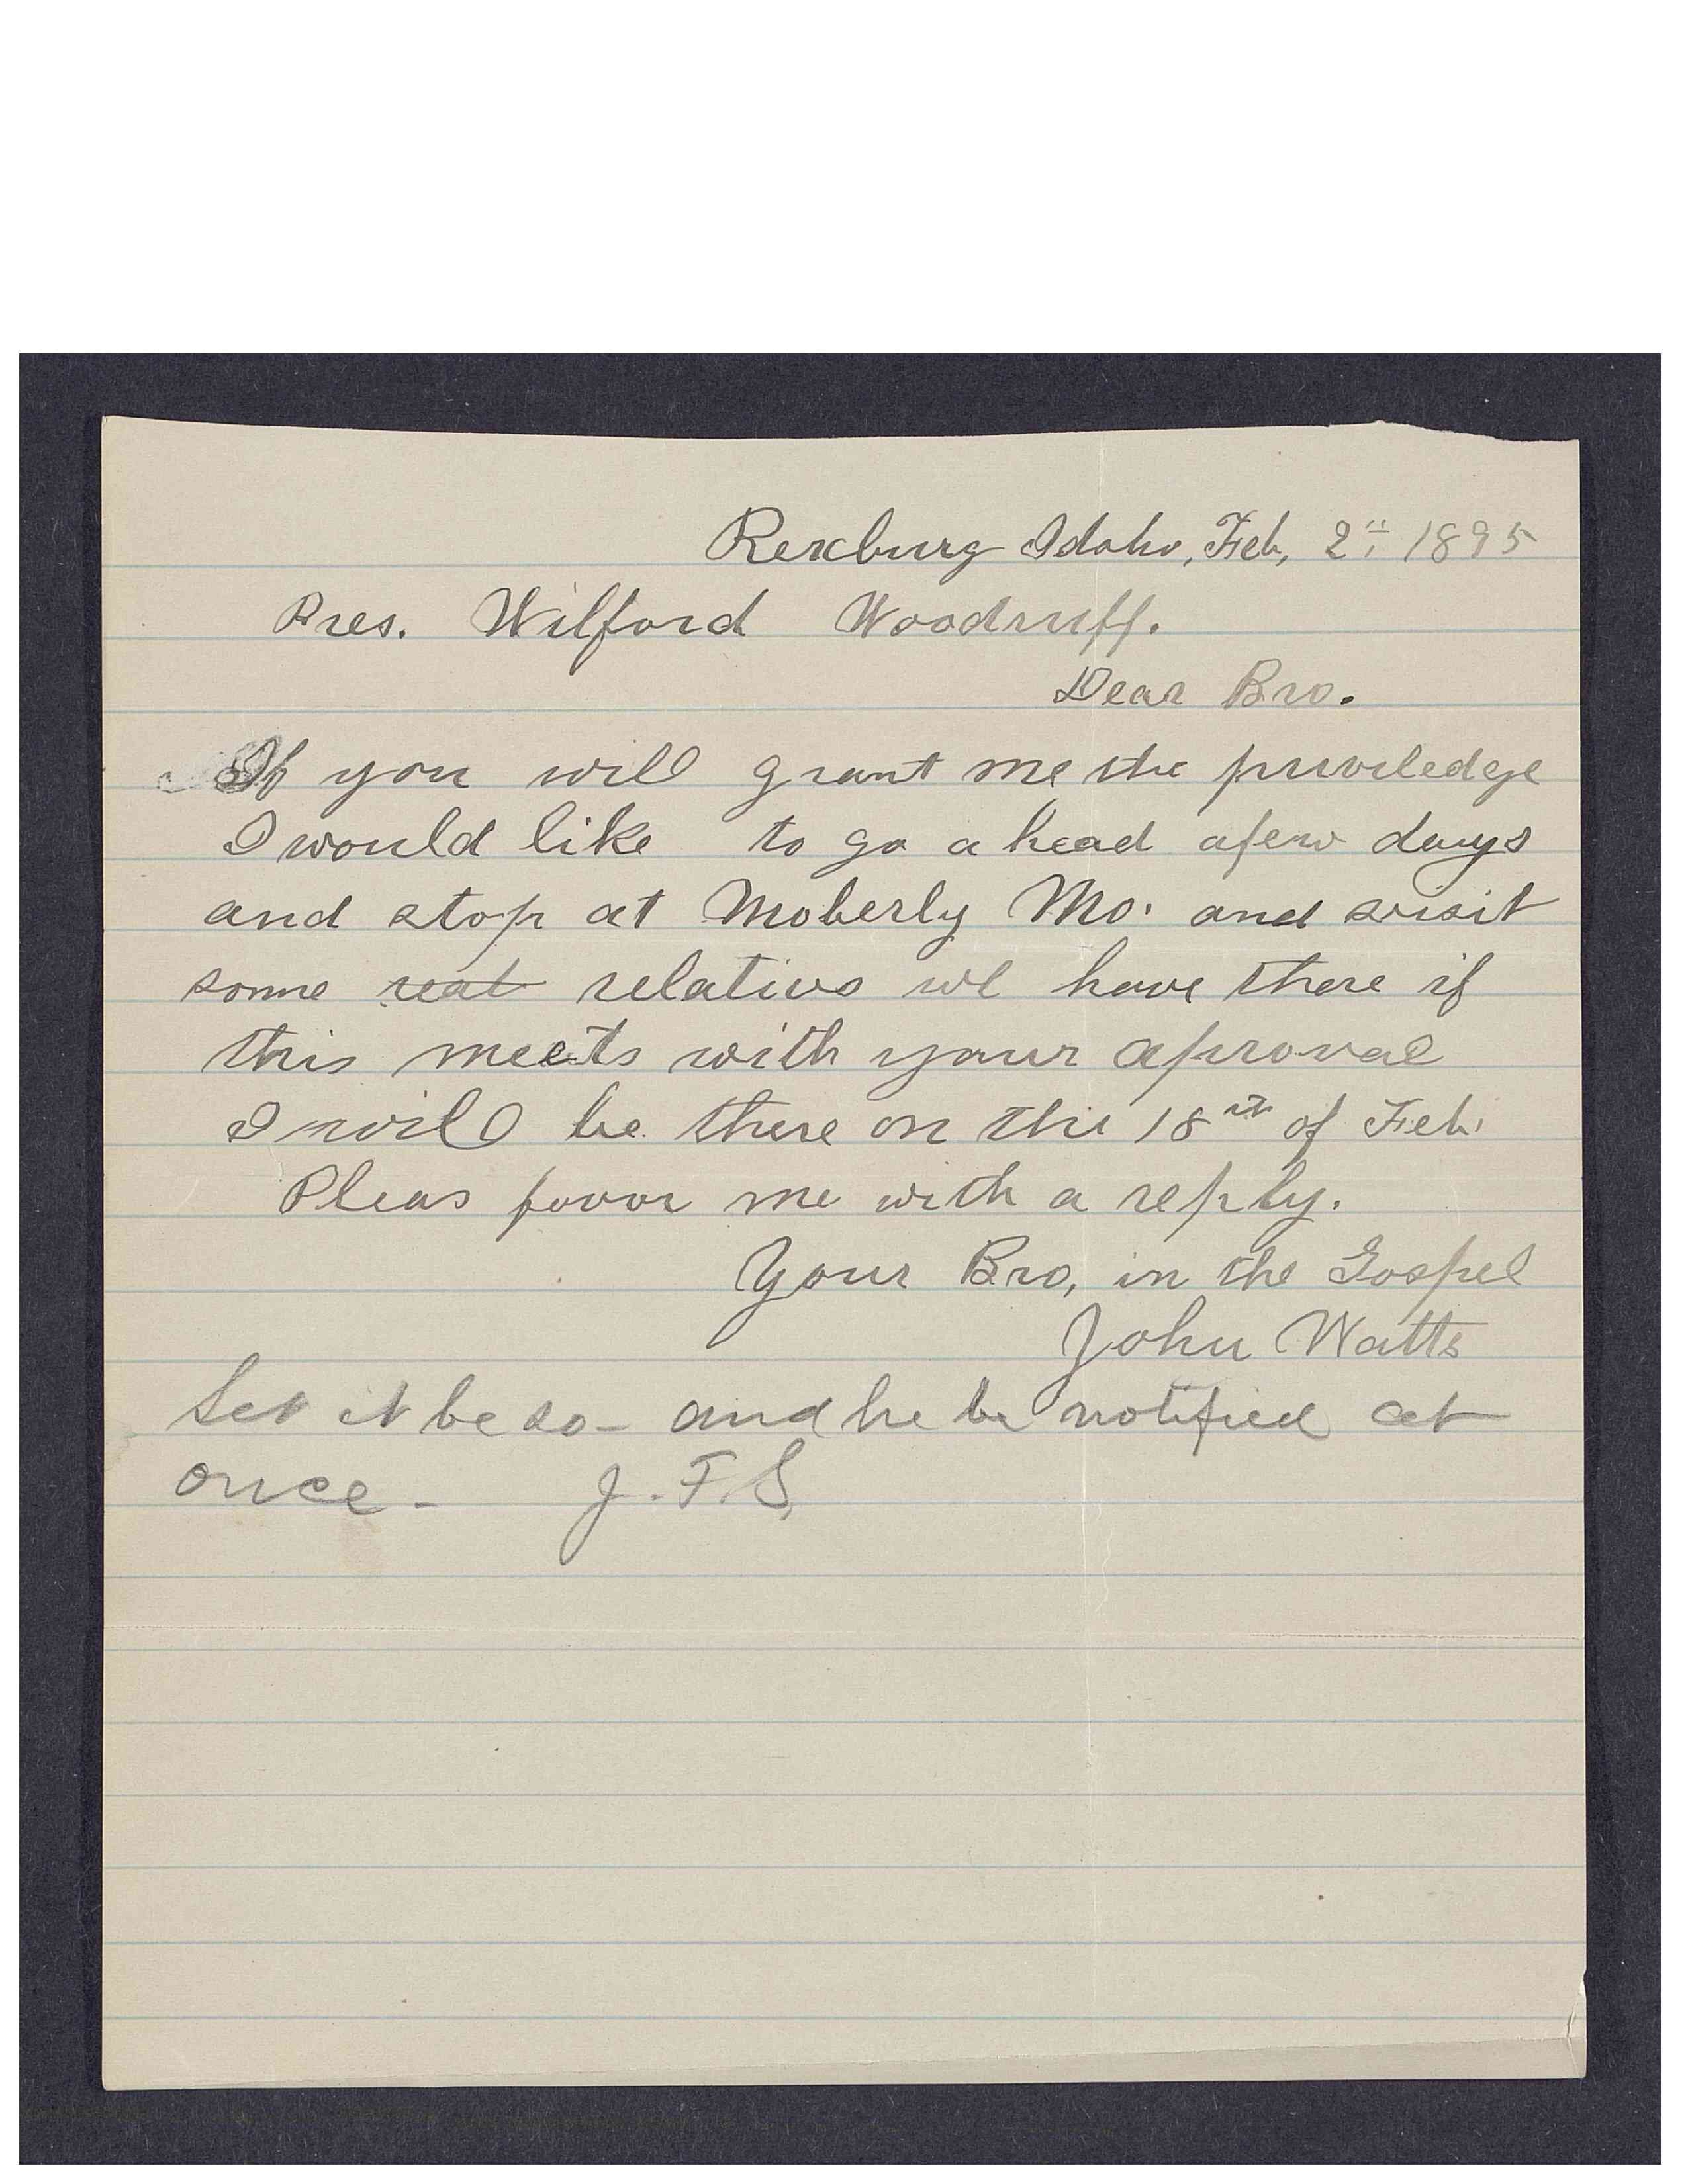 Rexburg Idaho, Feb, 2" 1895
Pres. Wilford Woodruff.
Dear Bro.
If you will grant me the priviledge
I would like to go a head afew days
and stop at Moberly Mo. and visit
some reat relativs we have there if
this meets with your aproval
I will be there on the 18th of Feb.
Pleas favor me with a reply.
Your Bro, in the Gospel
John Watts
Let it be so - and he be notified at
once - J. F. S,